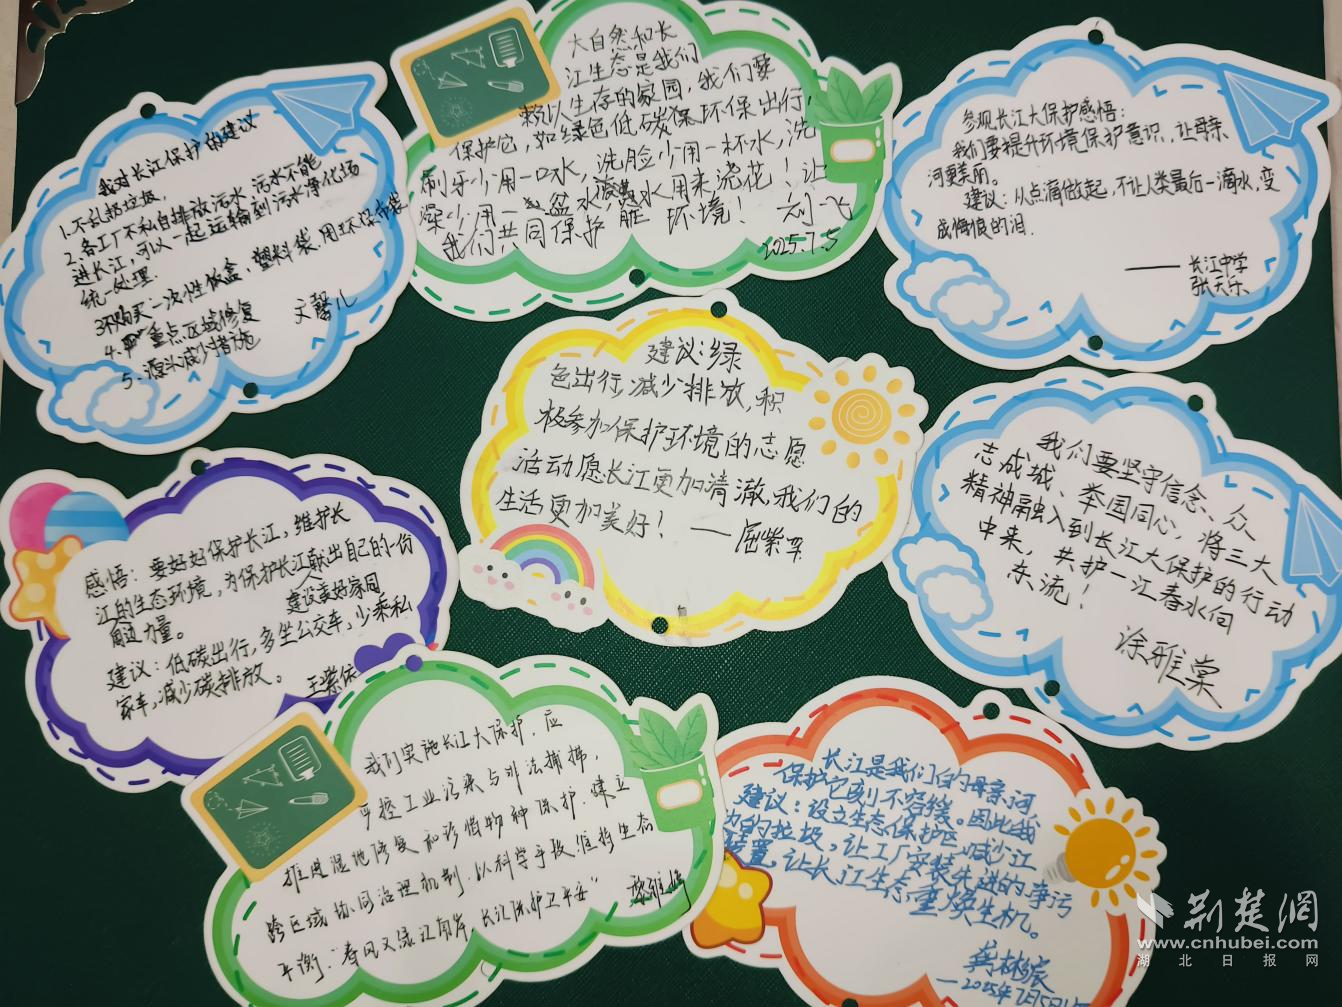 我对长江保护的建议
1.不乱扔垃圾,
2.各工厂不私自排放污水,污水不能
进长江,可以一起运输到污水净化场
统一处理.
3.不购买一次性饭盒,塑料袋,用环保布袋
4.重点区域修复
5.源头减少措施
文馨儿
大自然和长
江生态是我们
赖以生存的家园,我们要
保护它,如绿色,低碳保环保出行,
刷牙少用一口水,洗脸少用一杯水,洗
澡少用一盆水,水用来浇花!让
我们共同保护 环境!
刘飞
2025.7.5
参观长江大保护感悟:
我们要提升环境保护意识,让母亲
河更美丽。
建议:从点滴做起,不让人类最后一滴水,变
成悔恨的泪.
——长江中学
张天乐
建议:绿
色出行,减少排放,积
极参加保护环境的志愿
活动愿长江更加清澈,我们的
生活更加美好!
——屈紫
我们要坚守信念、众
志成城、举国同心,将三大
精神融入到长江大保护的行动
中来,共护一江春水向
东流!
涂雅棠
感悟:要好好保护长江,维护长
江的生态环境,为保护长江献出自己的一份
力量。
建设美好家园
建议:低碳出行,多坐公交车,少乘私
家车,减少碳排放。
王紫依
我们实施长江大保护,应
严控工业污染与非法捕捞,
推进湿地修复和珍惜物种保护.建立
跨区域协同治理机制.以科学手段维持生态
平衡."春风又绿江南岸,长江保护卫平安"
黎雅婷
长江是我们的母亲河
保护它刻不容缓。因此我
建议:设立生态保护区,减少江
内的垃圾,让工厂安装先进的净污
装置,让长江生态重焕生机。
龚林宸
—2025年7月5日
荆楚网
www.cnhubei.com
湖北日报网